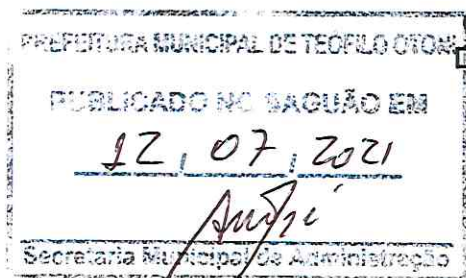 PREFEITURA MUNICIPAL DE TEÓFILO OTONI
PUBLICADO NO SAGUÃO EM
12, 07, 2021
Secretaria Municipal de Administração